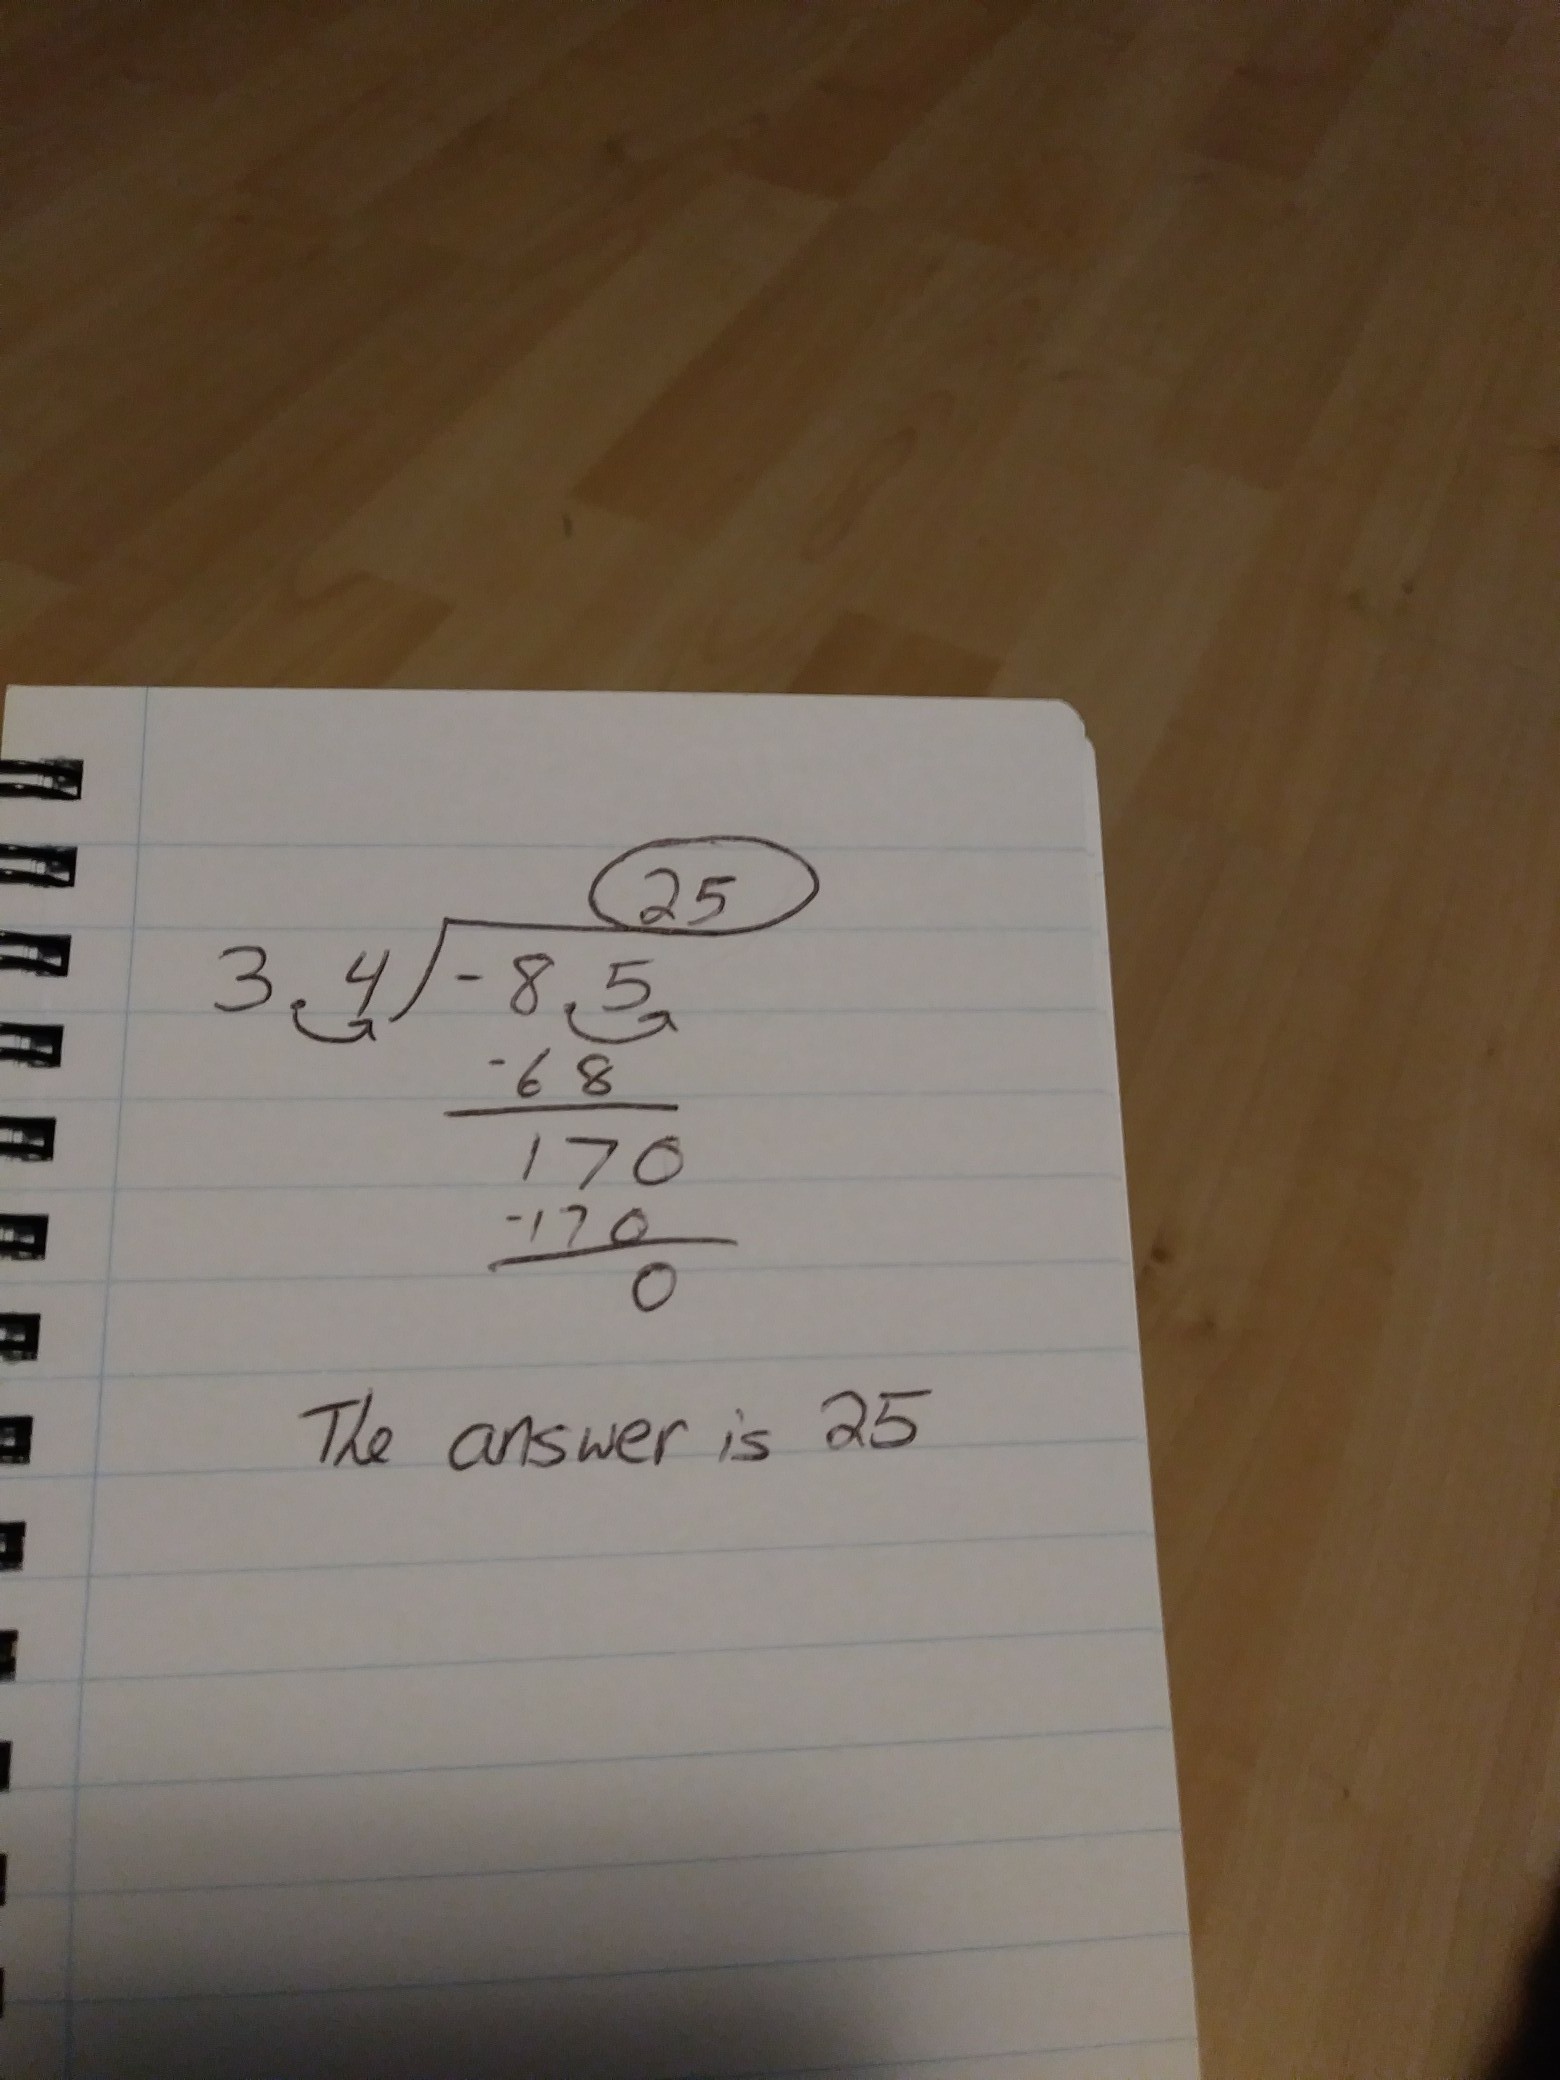 25
3.4)-8.5
-68
170
-170
0
The answer is 25